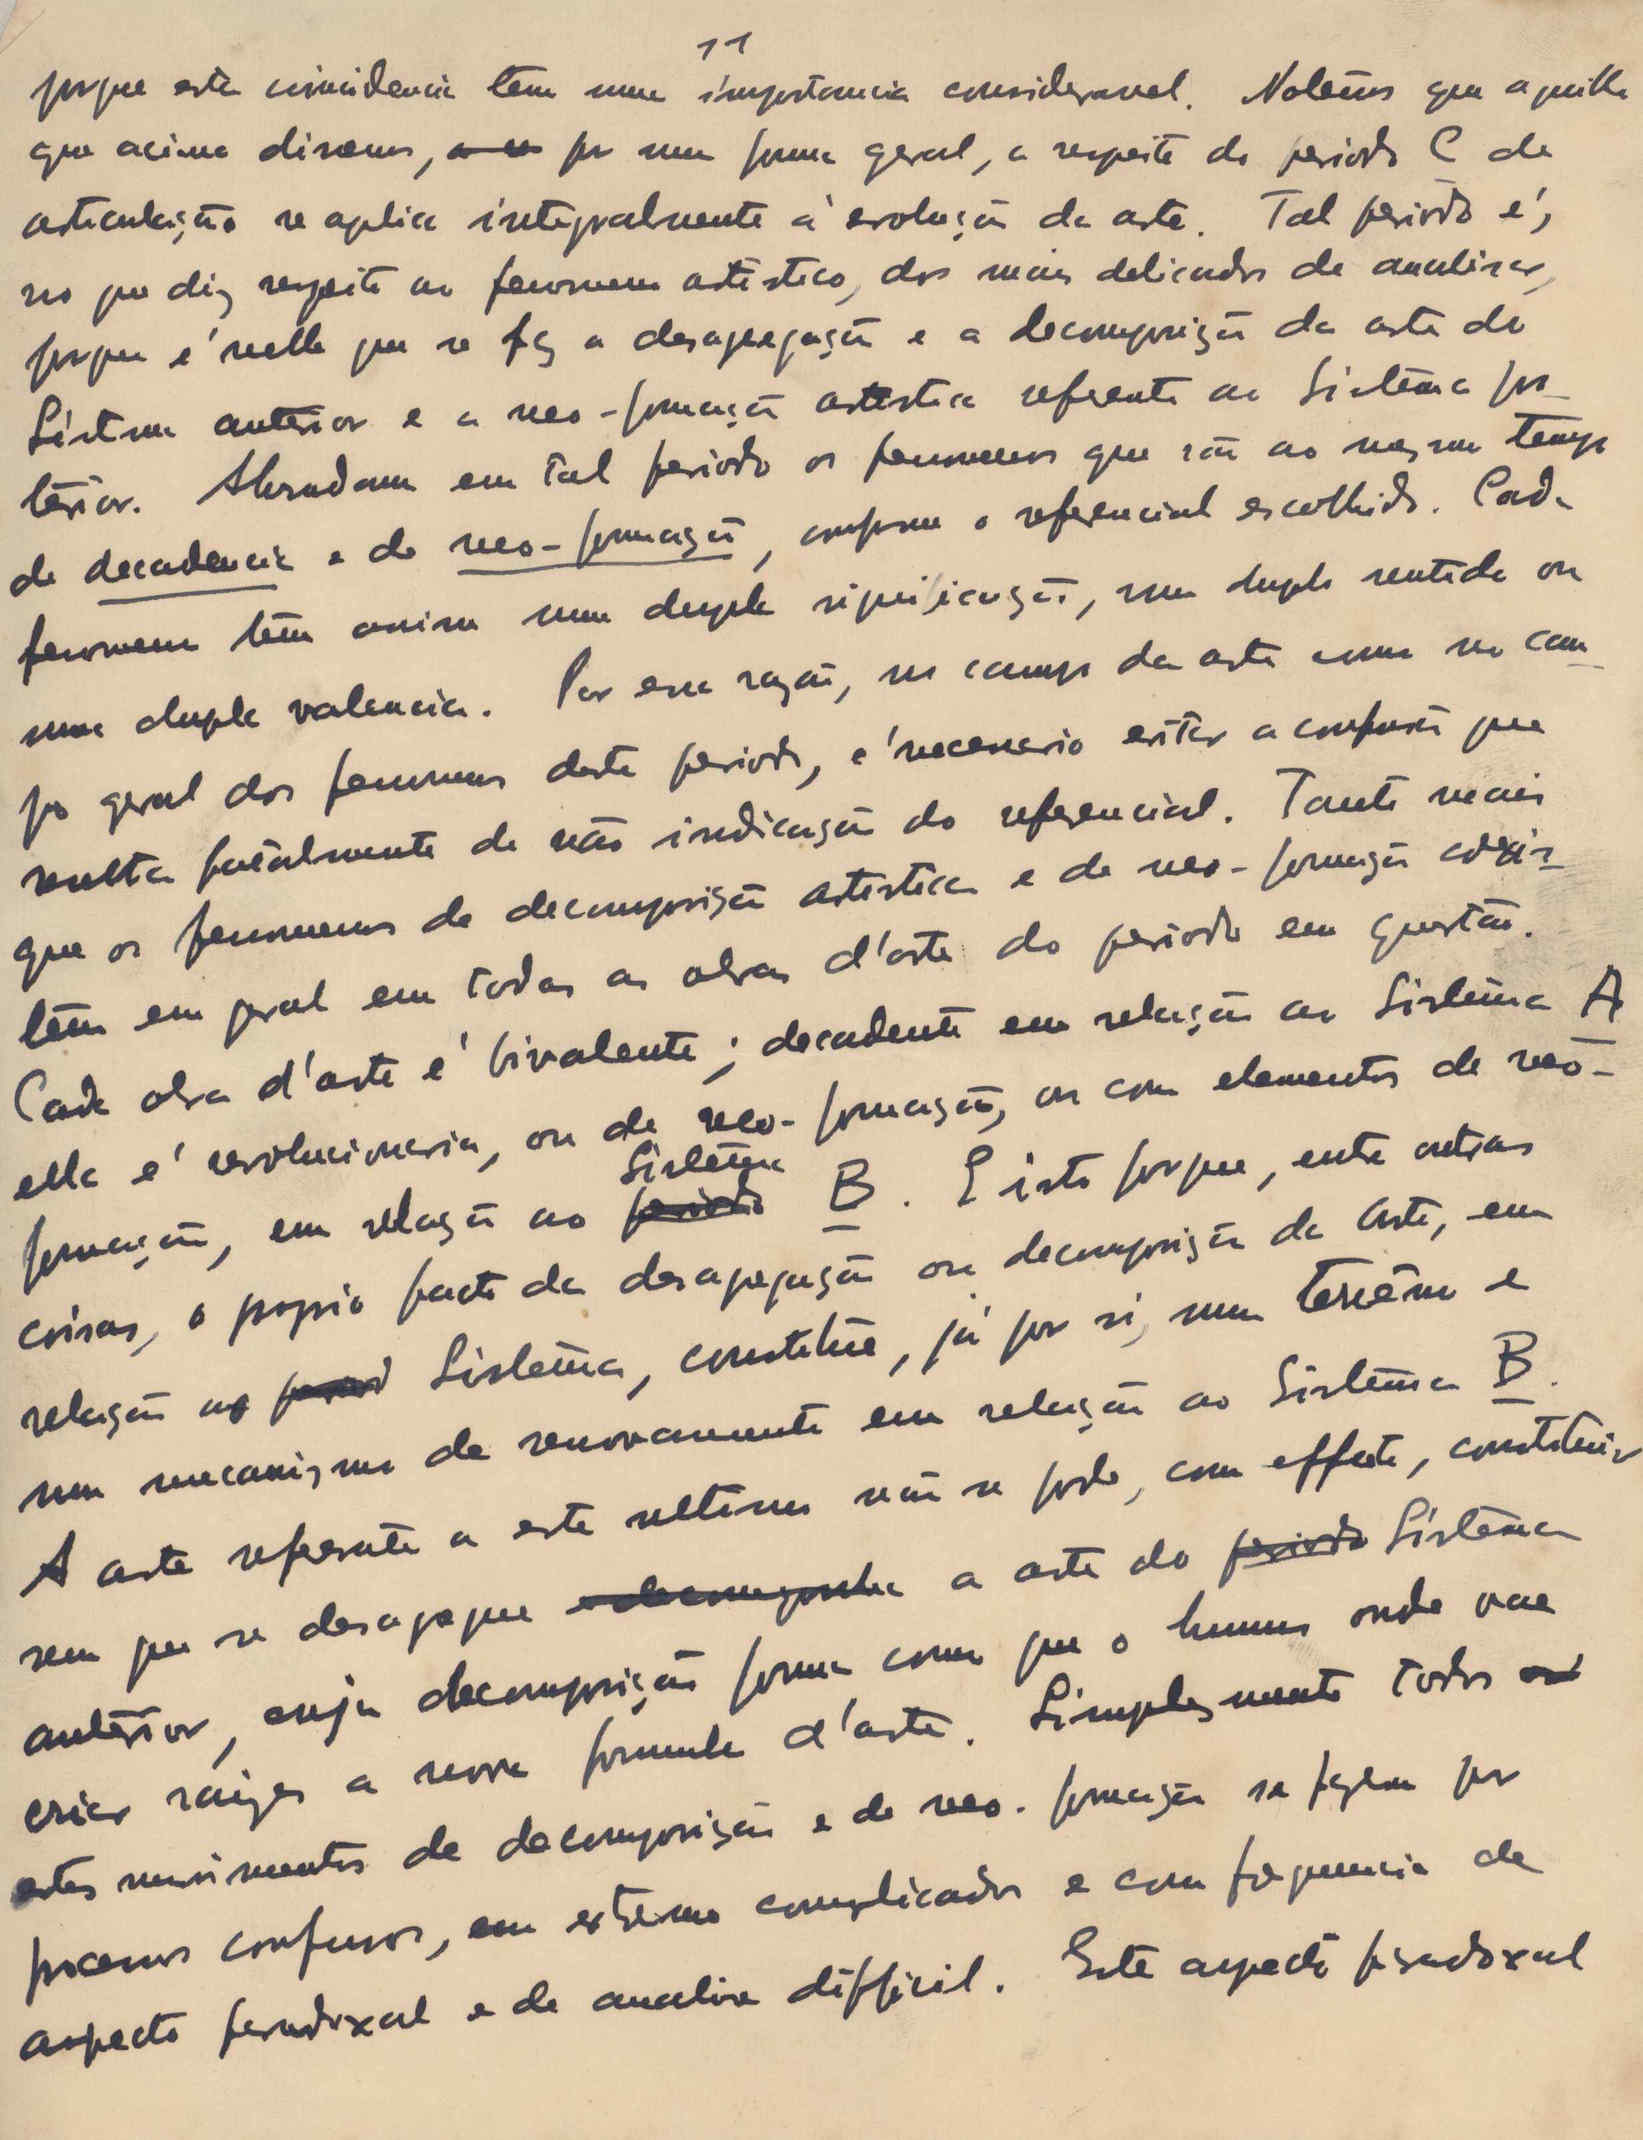 11
porque esta coincidencia tem uma importancia consideravel. Notemos que aquillo
que acima dissemos, por uma forma geral, a respeito do periodo C de
articulação se aplica integralmente á evolução da arte. Tal periodo é,
no que diz respeito ao fenomeno artistico, dos mais delicados de analisar,
porque é nelle que se faz a desagregação e a decomposição da arte do
Sistema anterior e a neo-formação artistica referente ao Sistema pos-
terior. Abundam em tal periodo os fenomenos que são ao mesmo tempo
de decadencia e de neo-formação, conforme o referencial escolhido. Cada
fenomeno tem assim uma dupla significação, um duplo sentido ou
uma dupla valencia. Por essa razão, no campo da arte como no cam-
po geral dos fenomenos deste periodo, é necessario evitar a confusão que
resulta fatalmente da não indicação do referencial. Tanto mais
que os fenomenos de decomposição artistica e de neo-formação coexis-
tem em geral em todas as obras d'arte do periodo em questão.
Cada obra d'arte é bivalente; decadente em relação ao Sistema A
ella é revolucionaria, ou de neo-formação, ou com elementos de neo-
formação, em relação ao periodo Sistema B. E isto porque, entre outras
coisas, o proprio facto da desagregação ou decomposição da arte, em
relação ao Sistema, constitue, já por si, um terreno e
um mecanismo de renovamento em relação ao Sistema B.
A arte referente a este ultimo não se pode, com effeito, constituir
sem que se desagregue e decomponha a arte do periodo Sistema
anterior, cuja decomposição forma como que o humus onde vae
criar raizes a nova formula d'arte. Simplesmente todos
estes movimentos de decomposição e de neo-formação se fazem por
processos confusos, em extremo complicados e com frequencia de
aspecto paradoxal e de analise difficil. Este aspecto paradoxal